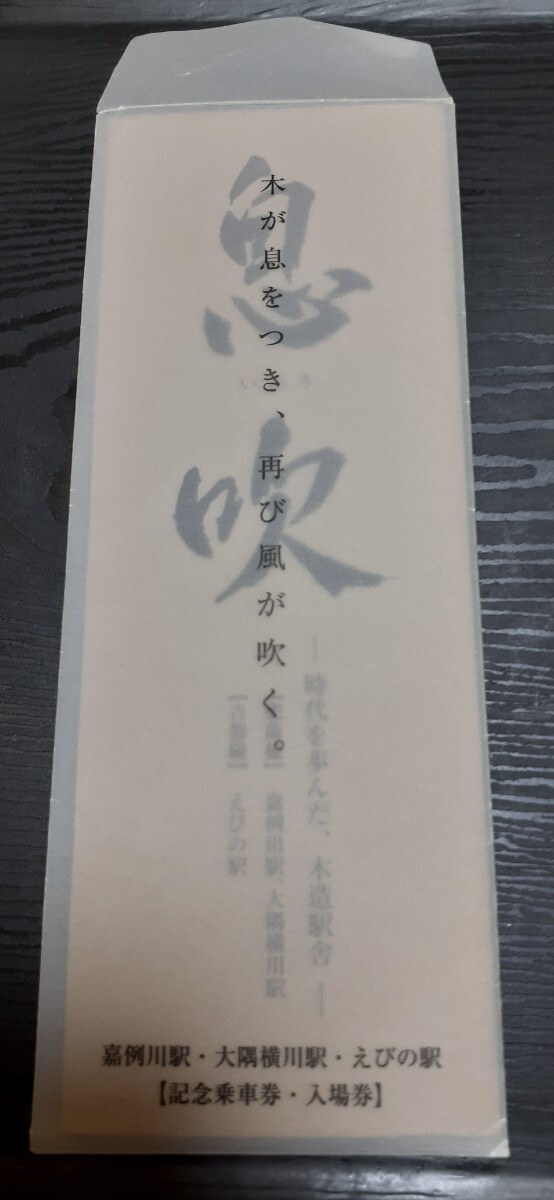 木が息をつき、再び風が吹く。
息吹
いぶき
― 時代を歩んだ、木造駅舎 ―
嘉例川駅、大隅横川駅
【吉都線】 えびの駅
嘉例川駅・大隅横川駅・えびの駅
【記念乗車券・入場券】